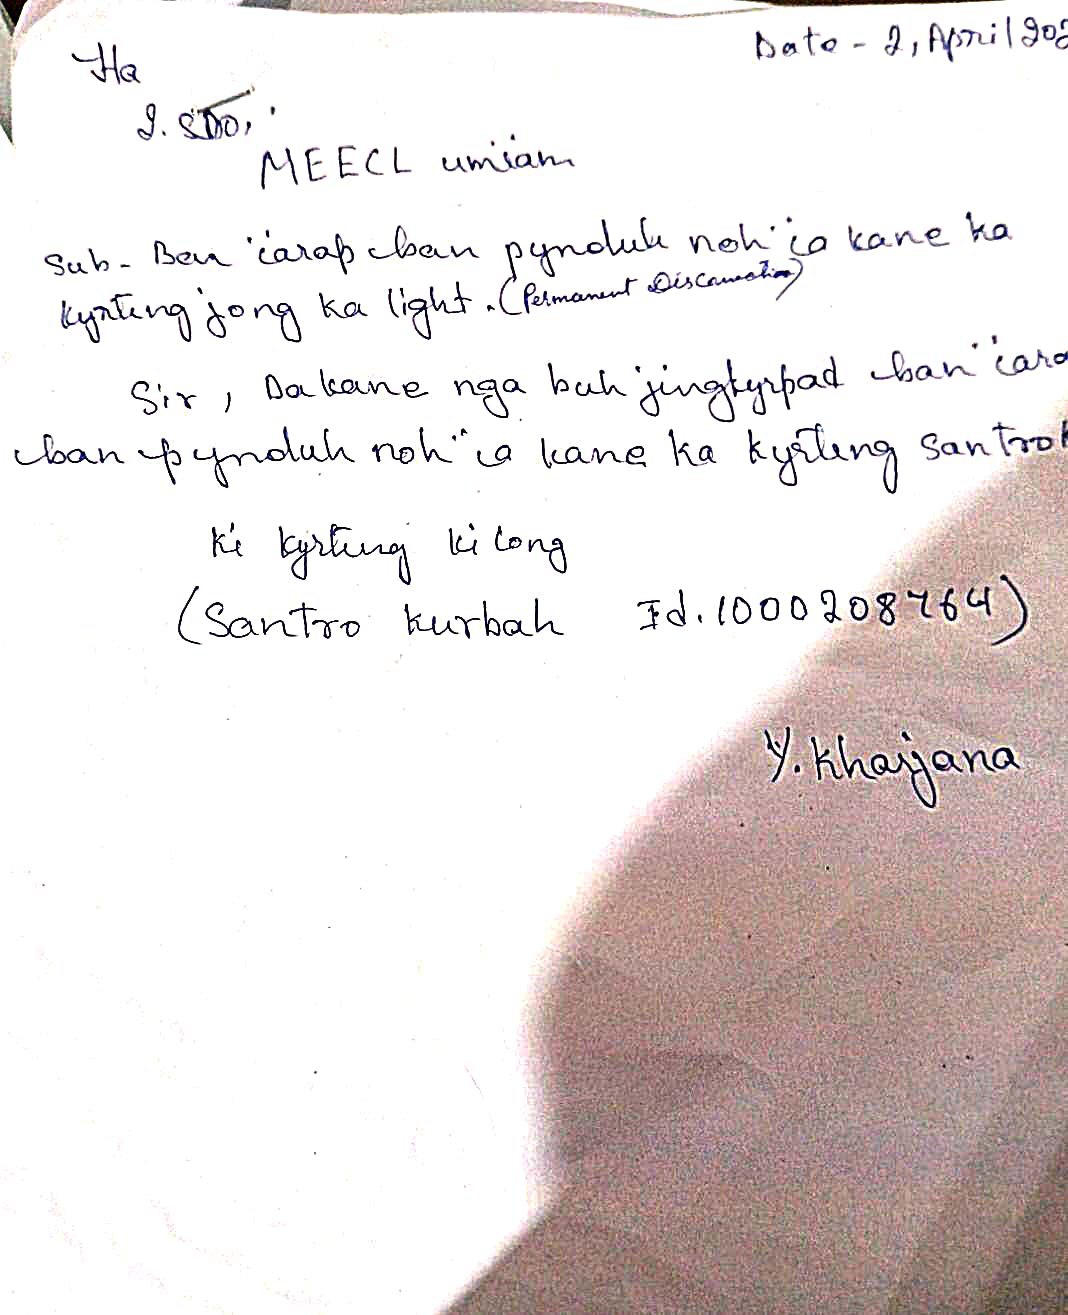 Ha
I. SDO,
MEECL umiam
Date - 2, April 202
Sub- Ban iarap ban pynduh noh ia kane ka
kyrteng jong ka light. (Permanent Disconnection)
Sir, Da kane nga buh jingkyrpad ban iara
ban pynduh noh ia kane ka kyrteng Santro
Ki kyrteng ki long
(Santro kurbah Id. 1000208764)
Y. Kharjana